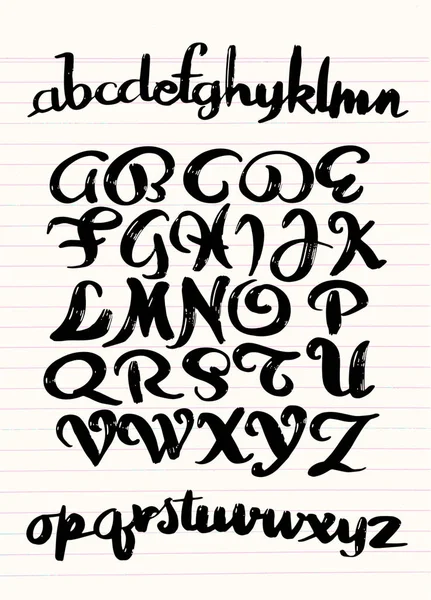 abcdefghyklmn
ABCDE
FGHIJK
LMNOP
QRSTU
VWXYZ
opqrstuvwxyz